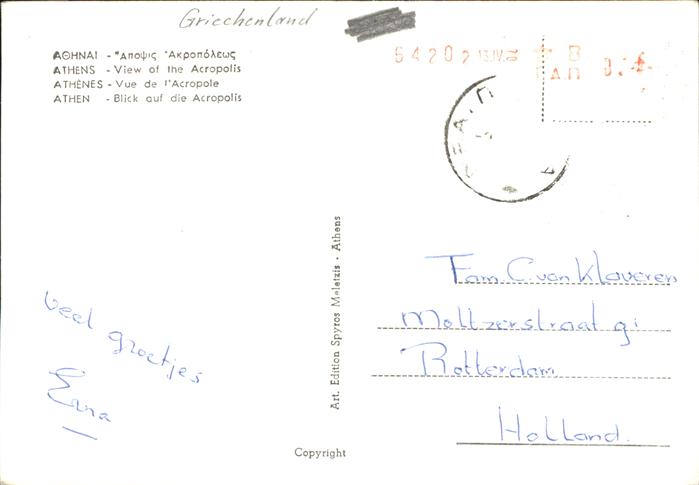 Griechenland
ΑΘΗΝΑΙ - "Αποψις Ἀκροπόλεως
ATHENS - View of the Acropolis
ATHÈNES - Vue de l'Acropole
ATHEN - Blick auf die Acropolis
64202 13.IV.
veel groetjes
Erna
Art. Edition Spyros Meletzis · Athens
Fam. C. van Klaveren
Moltzerstraat 9i
Rotterdam
Holland.
Copyright